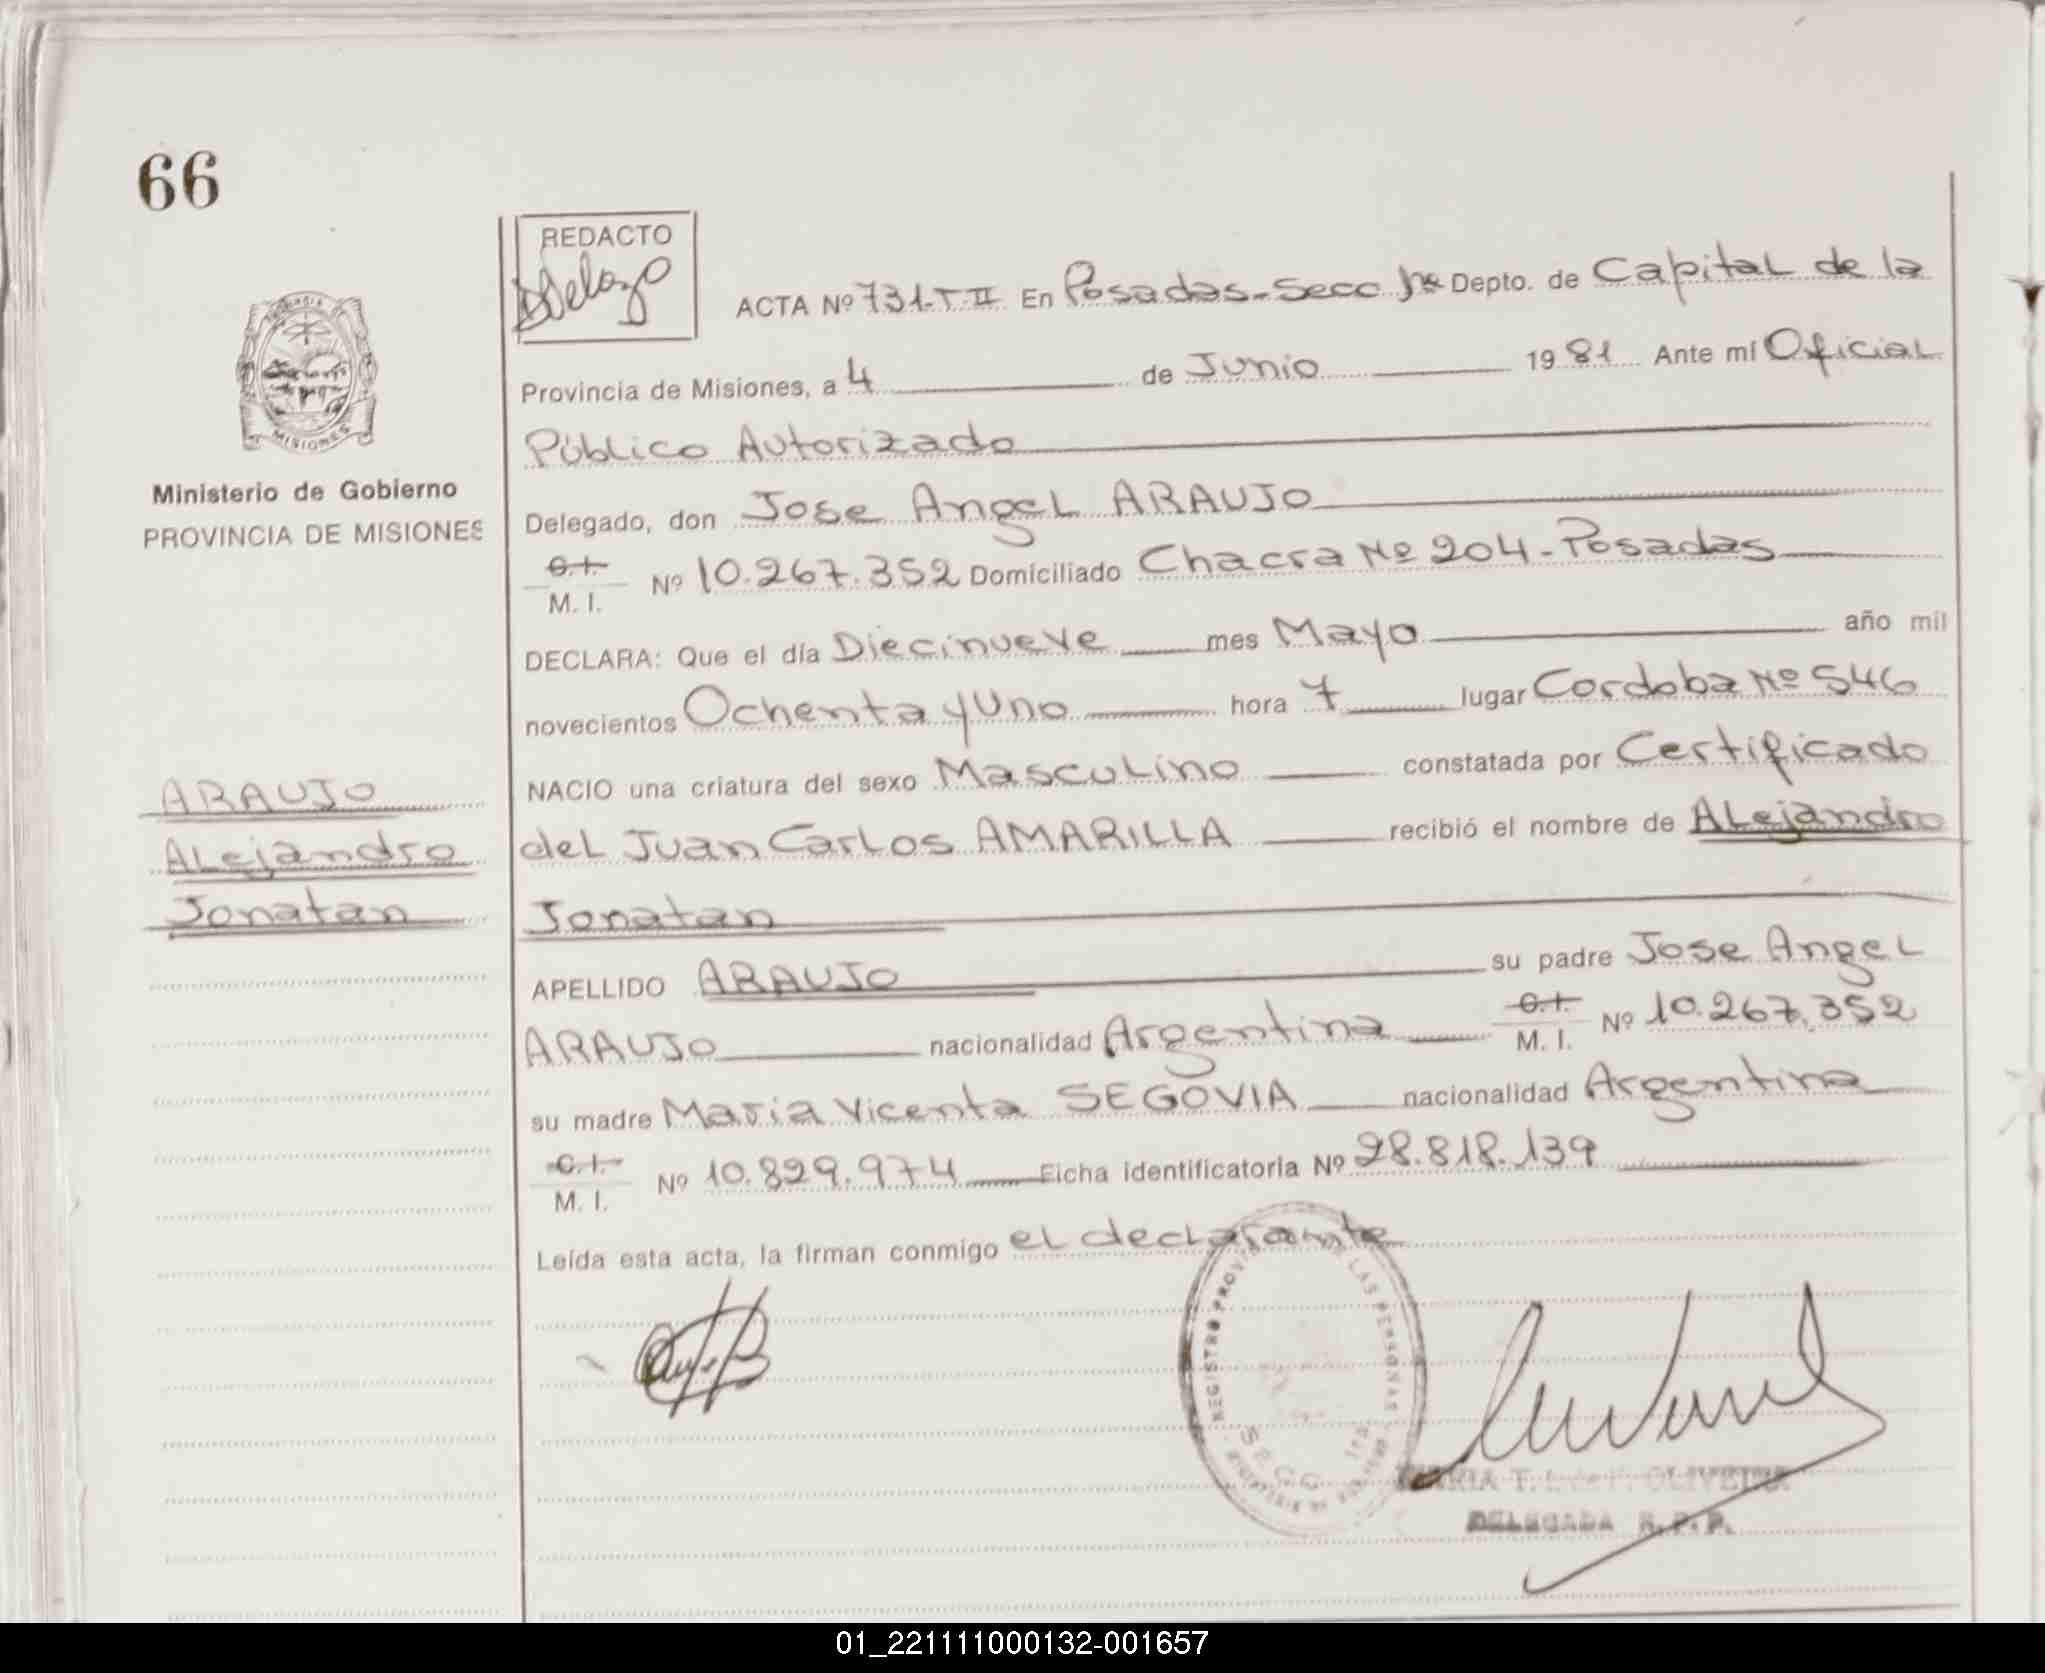 66
REDACTO
MISIONES
Ministerio de Gobierno
PROVINCIA DE MISIONES
ARAUJO
ALejandro
Jonatan
ACTA Nº 731-T-II En Posadas-Secc 1ra Depto. de CapitaL de la
Provincia de Misiones, a 4 de Junio 1981 Ante mí OficiaL
Público Autorizado
Delegado, don Jose AngeL ARAUJO
C.I.
M. I. Nº 10.267.352 Domiciliado Chacra Nº 204-Posadas
DECLARA: Que el día Diecinueve mes Mayo año mil
novecientos Ochenta y Uno hora 7 lugar Cordoba Nº 546
NACIO una criatura del sexo MascuLino constatada por Certificado
deL Juan CarLos AMARILLA recibió el nombre de ALejandro
Jonatan
APELLIDO ARAUJO su padre Jose AngeL
ARAUJO nacionalidad Argentina C.I.
M. I. Nº 10.267.352
su madre Maria Vicenta SEGOVIA nacionalidad Argentina
C.I.
M. I. Nº 10.829.974 Ficha identificatoria Nº 28.818.139
Leída esta acta, la firman conmigo eL decLarante
REGISTRO PROV LAS PERSONAS
MARIA T. OLIVEIRA
DELEGADA R.P.P.
01_221111000132-001657